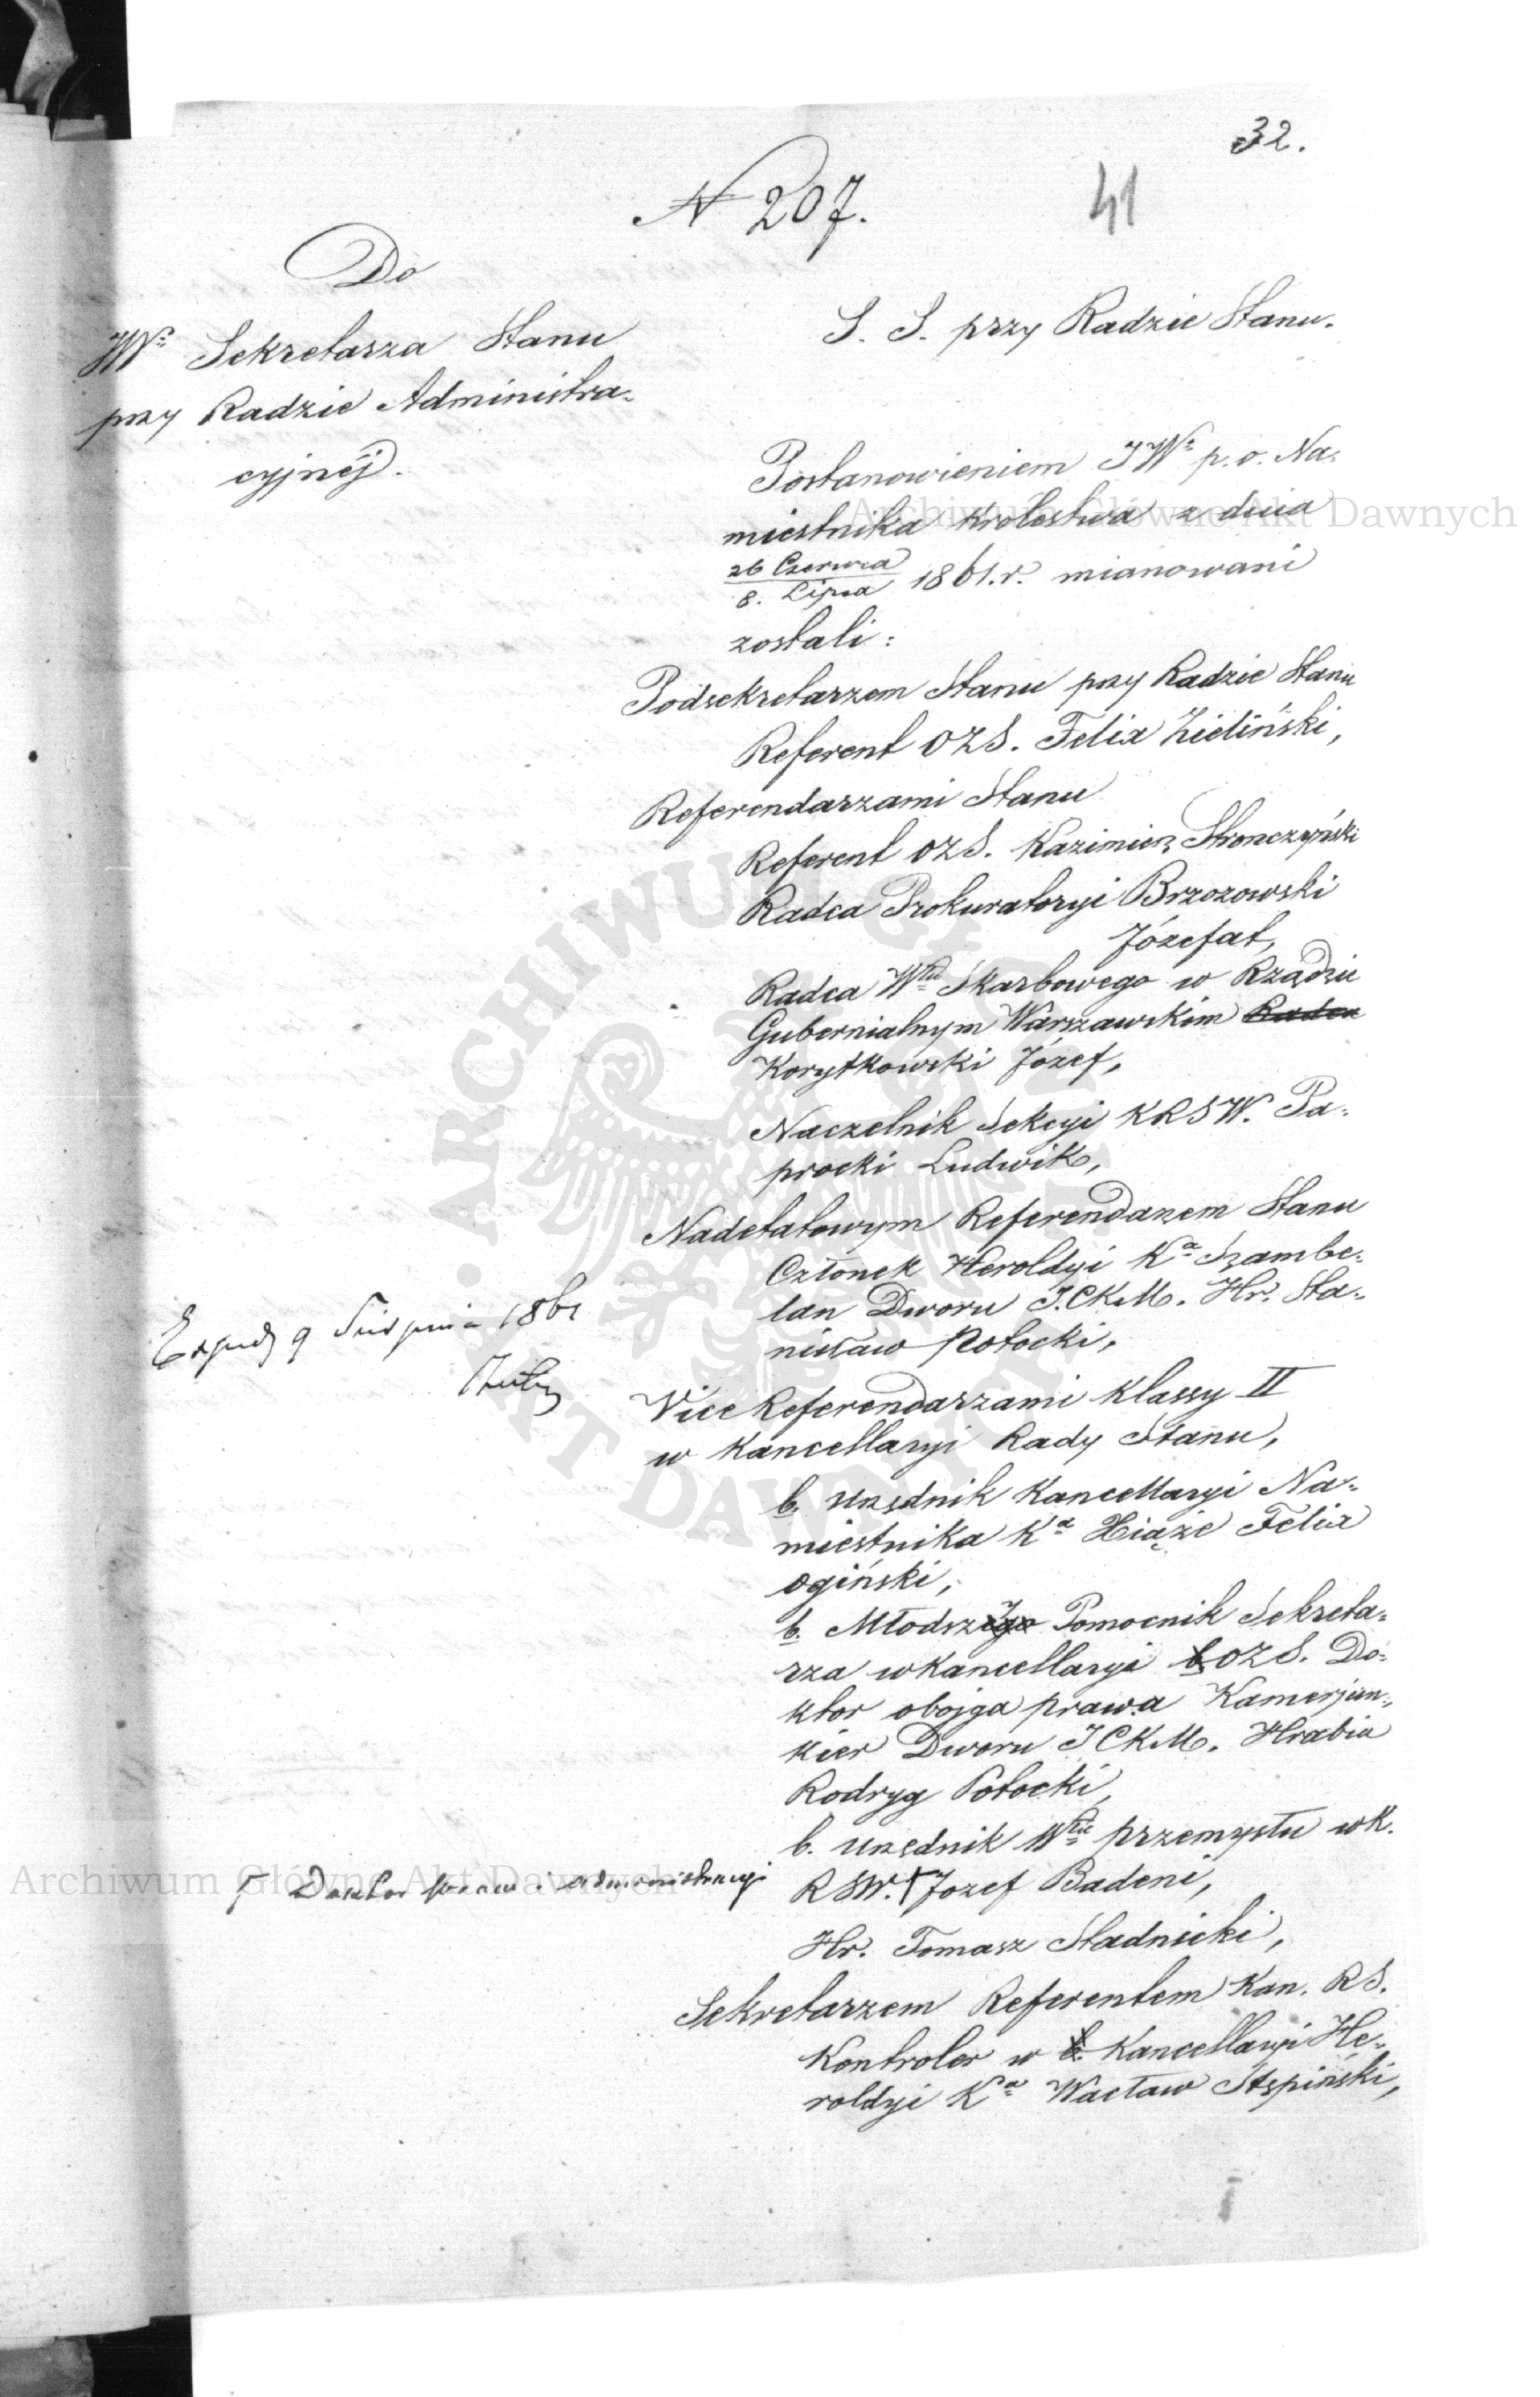 32.
N 207.
41
Do
JWº Sekretarza Stanu
przy Radzie Administra-
cyjnéj.
S. S. przy Radzie Stanu.
Postanowieniem JWº p. o. Na-
miestnika Królestwa z dnia
26 Czerwca
8. Lipca 1861. r. mianowani
zostali:
Podsekretarzem Stanu przy Radzie Stanu
Referent OZS. Felix Zieliński,
Referendarzami Stanu
Referent OZS. Kazimierz Stronczyński
Radca Prokuratoryi Brzozowski
Józefat,
Radca Włu Skarbowego w Rządzie
Gubernialnym Warszawskim Radca
Korytkowski Józef,
Naczelnik Sekcyi KRSW. Pa-
procki Ludwik,
Nadetatowym Referendarzem Stanu
Członek Heroldyi Kª Szambe-
lan Dworu J.CKM. Hr. Sta-
nisław Potocki,
Vice Referendarzami Klassy II
w Kancellaryi Rady Stanu,
b. urzędnik Kancellaryi Na-
miestnika Kª Xiąże Felix
Ogiński,
b. Młodszy Pomocnik Sekreta-
rza w Kancellaryi b OZS. Do-
ktor obojga prawa Kamerjun-
kier Dworu JCKM. Hrabia
Rodryg Potocki,
b. urzędnik Włu przemysłu w K.
RSW. Γ Józef Badeni,
Hr. Tomasz Stadnicki,
Sekretarzem Referentem Kan. RS.
Kontroler w b. Kancellaryi He-
roldyi Kª Wacław Stępiński,
Exped 9 Sierpnia 1861
Γ Doktor praw i administracyi
Archiwum Główne Akt Dawnych
Archiwum Główne Akt Dawnych
ARCHIWUM GŁÓWNE AKT DAWNYCH